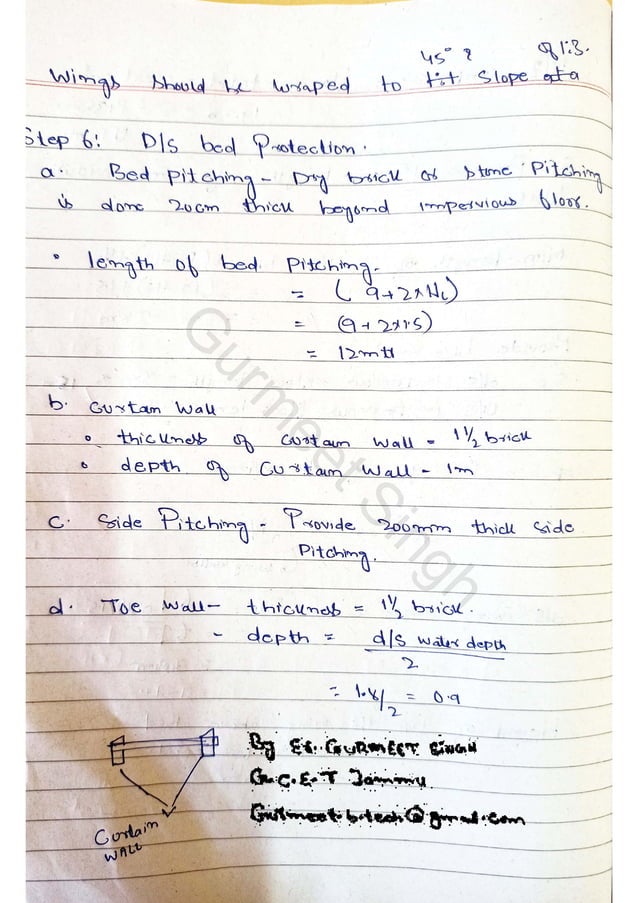 45° & of 1:3.
Wings should be wraped to tit slope at a
Step 6: D/S bed Protection.
a. Bed pitching - Dry brick or stone Pitching
is done 20cm thick beyond impervious floor.
• length of bed Pitching.
= (9+2×HL)
= (9+2×1.5)
= 12mtr
b. Curtain Wall
• thickness of curtain wall - 1 1/2 brick
• depth of Curtain Wall - 1m
c. Side Pitching - Provide 200mm thick side
Pitching.
d. Toe Wall - thickness = 1 1/2 brick.
- depth = d/s water depth
2
= 1.8/2 = 0.9
By Er. GURMEET SINGH
G.C.E.T Jammu
Gurmeet.b.tech@gmail.com
Curtain
WALL
Gurmeet Singh